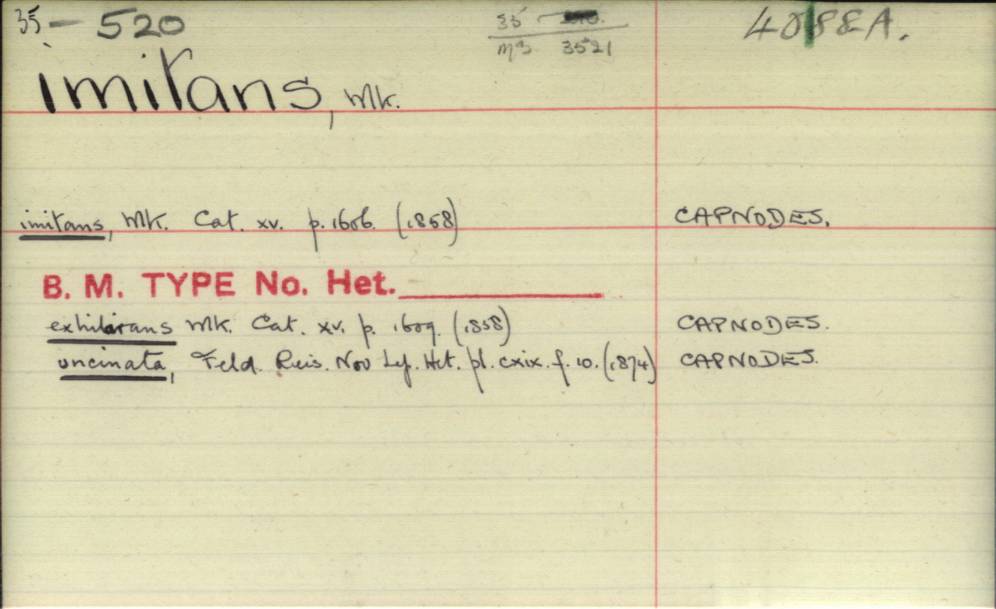 35 - 520
35
M3 3521
4088A.
imitans, Wlk.
imitans, Wlk. Cat. xv. p. 1606. (1858) CAPNODES.
B. M. TYPE No. Het.
exhilarans Wlk. Cat. xv. p. 1609. (1858) CAPNODES.
uncinata, Feld. Reis. Nov Lep. Het. pl. cxix. f. 10. (1874) CAPNODES.